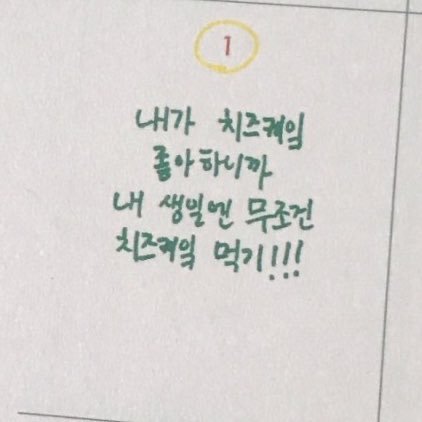 1
내가 치즈케잌
좋아하니까
내 생일엔 무조건
치즈케잌 먹기!!!